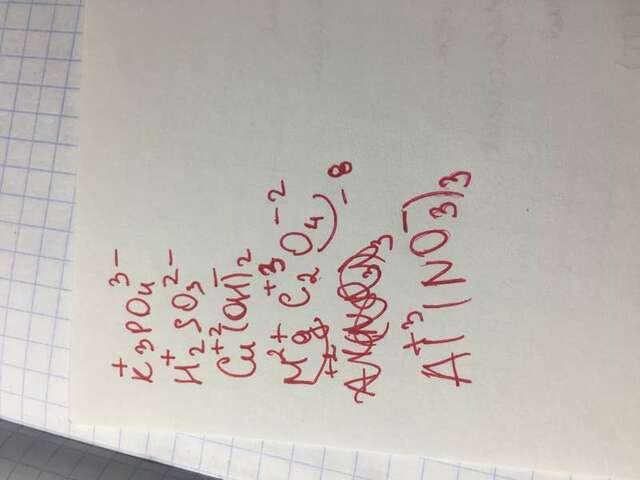 K⁺₃PO₄³⁻
H⁺₂SO₃²⁻
Cu⁺²(OH)⁻₂
Mg²⁺C⁺³₂O₄⁻² -8
Al⁺³(NO₃⁻)₃